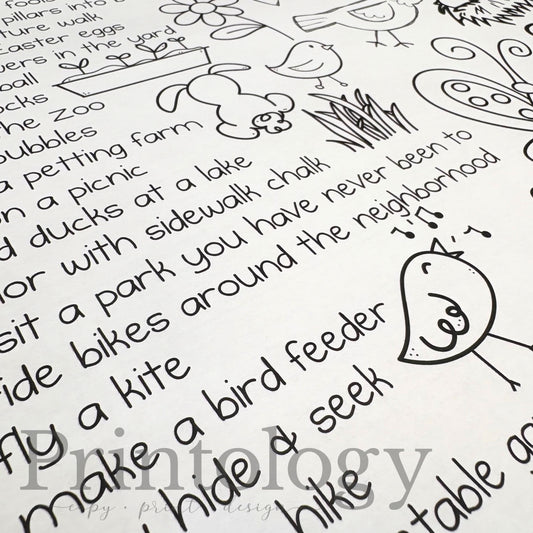 pillars into b
ture walk
easter eggs
wers in the yard
ball
ocks
the zoo
bubbles
a petting farm
on a picnic
d ducks at a lake
lor with sidewalk chalk
sit a park you have never been to
ride bikes around the neighborhood
fly a kite
make a bird feeder
hide & seek
hike
table ga
Printology
copy · print · design